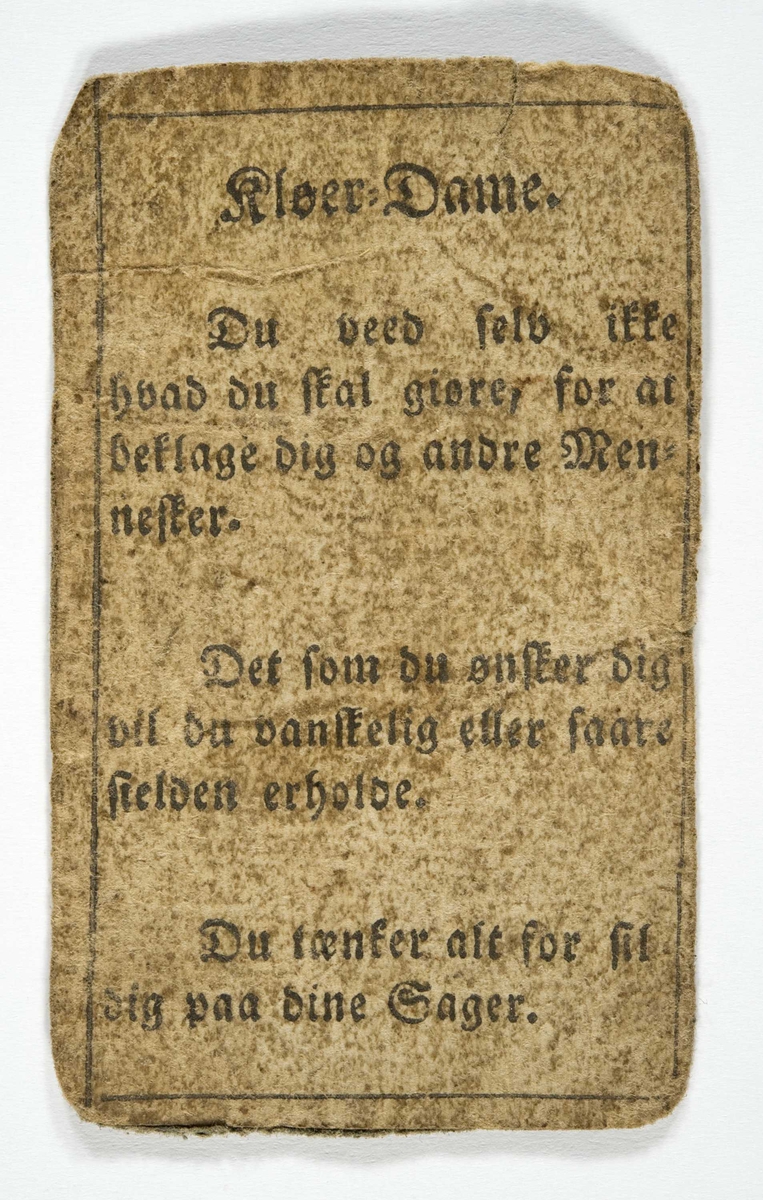 Kløer-Dame.
Du veed selv ikke
hvad du skal giøre, for at
beklage dig og andre Men-
nesker.
Det som du ønsker dig
vil du vanskelig eller saare
sielden erholde.
Du tænker alt for sil
dig paa dine Sager.